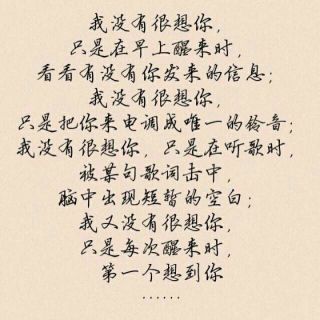 我没有很想你，
只是在早上醒来时，
看看有没有你发来的信息；
我没有很想你，
只是把你来电调成唯一的铃音；
我没有很想你，只是在听歌时，
被某句歌词击中，
脑中出现短暂的空白；
我又没有很想你，
只是每次醒来时，
第一个想到你
......